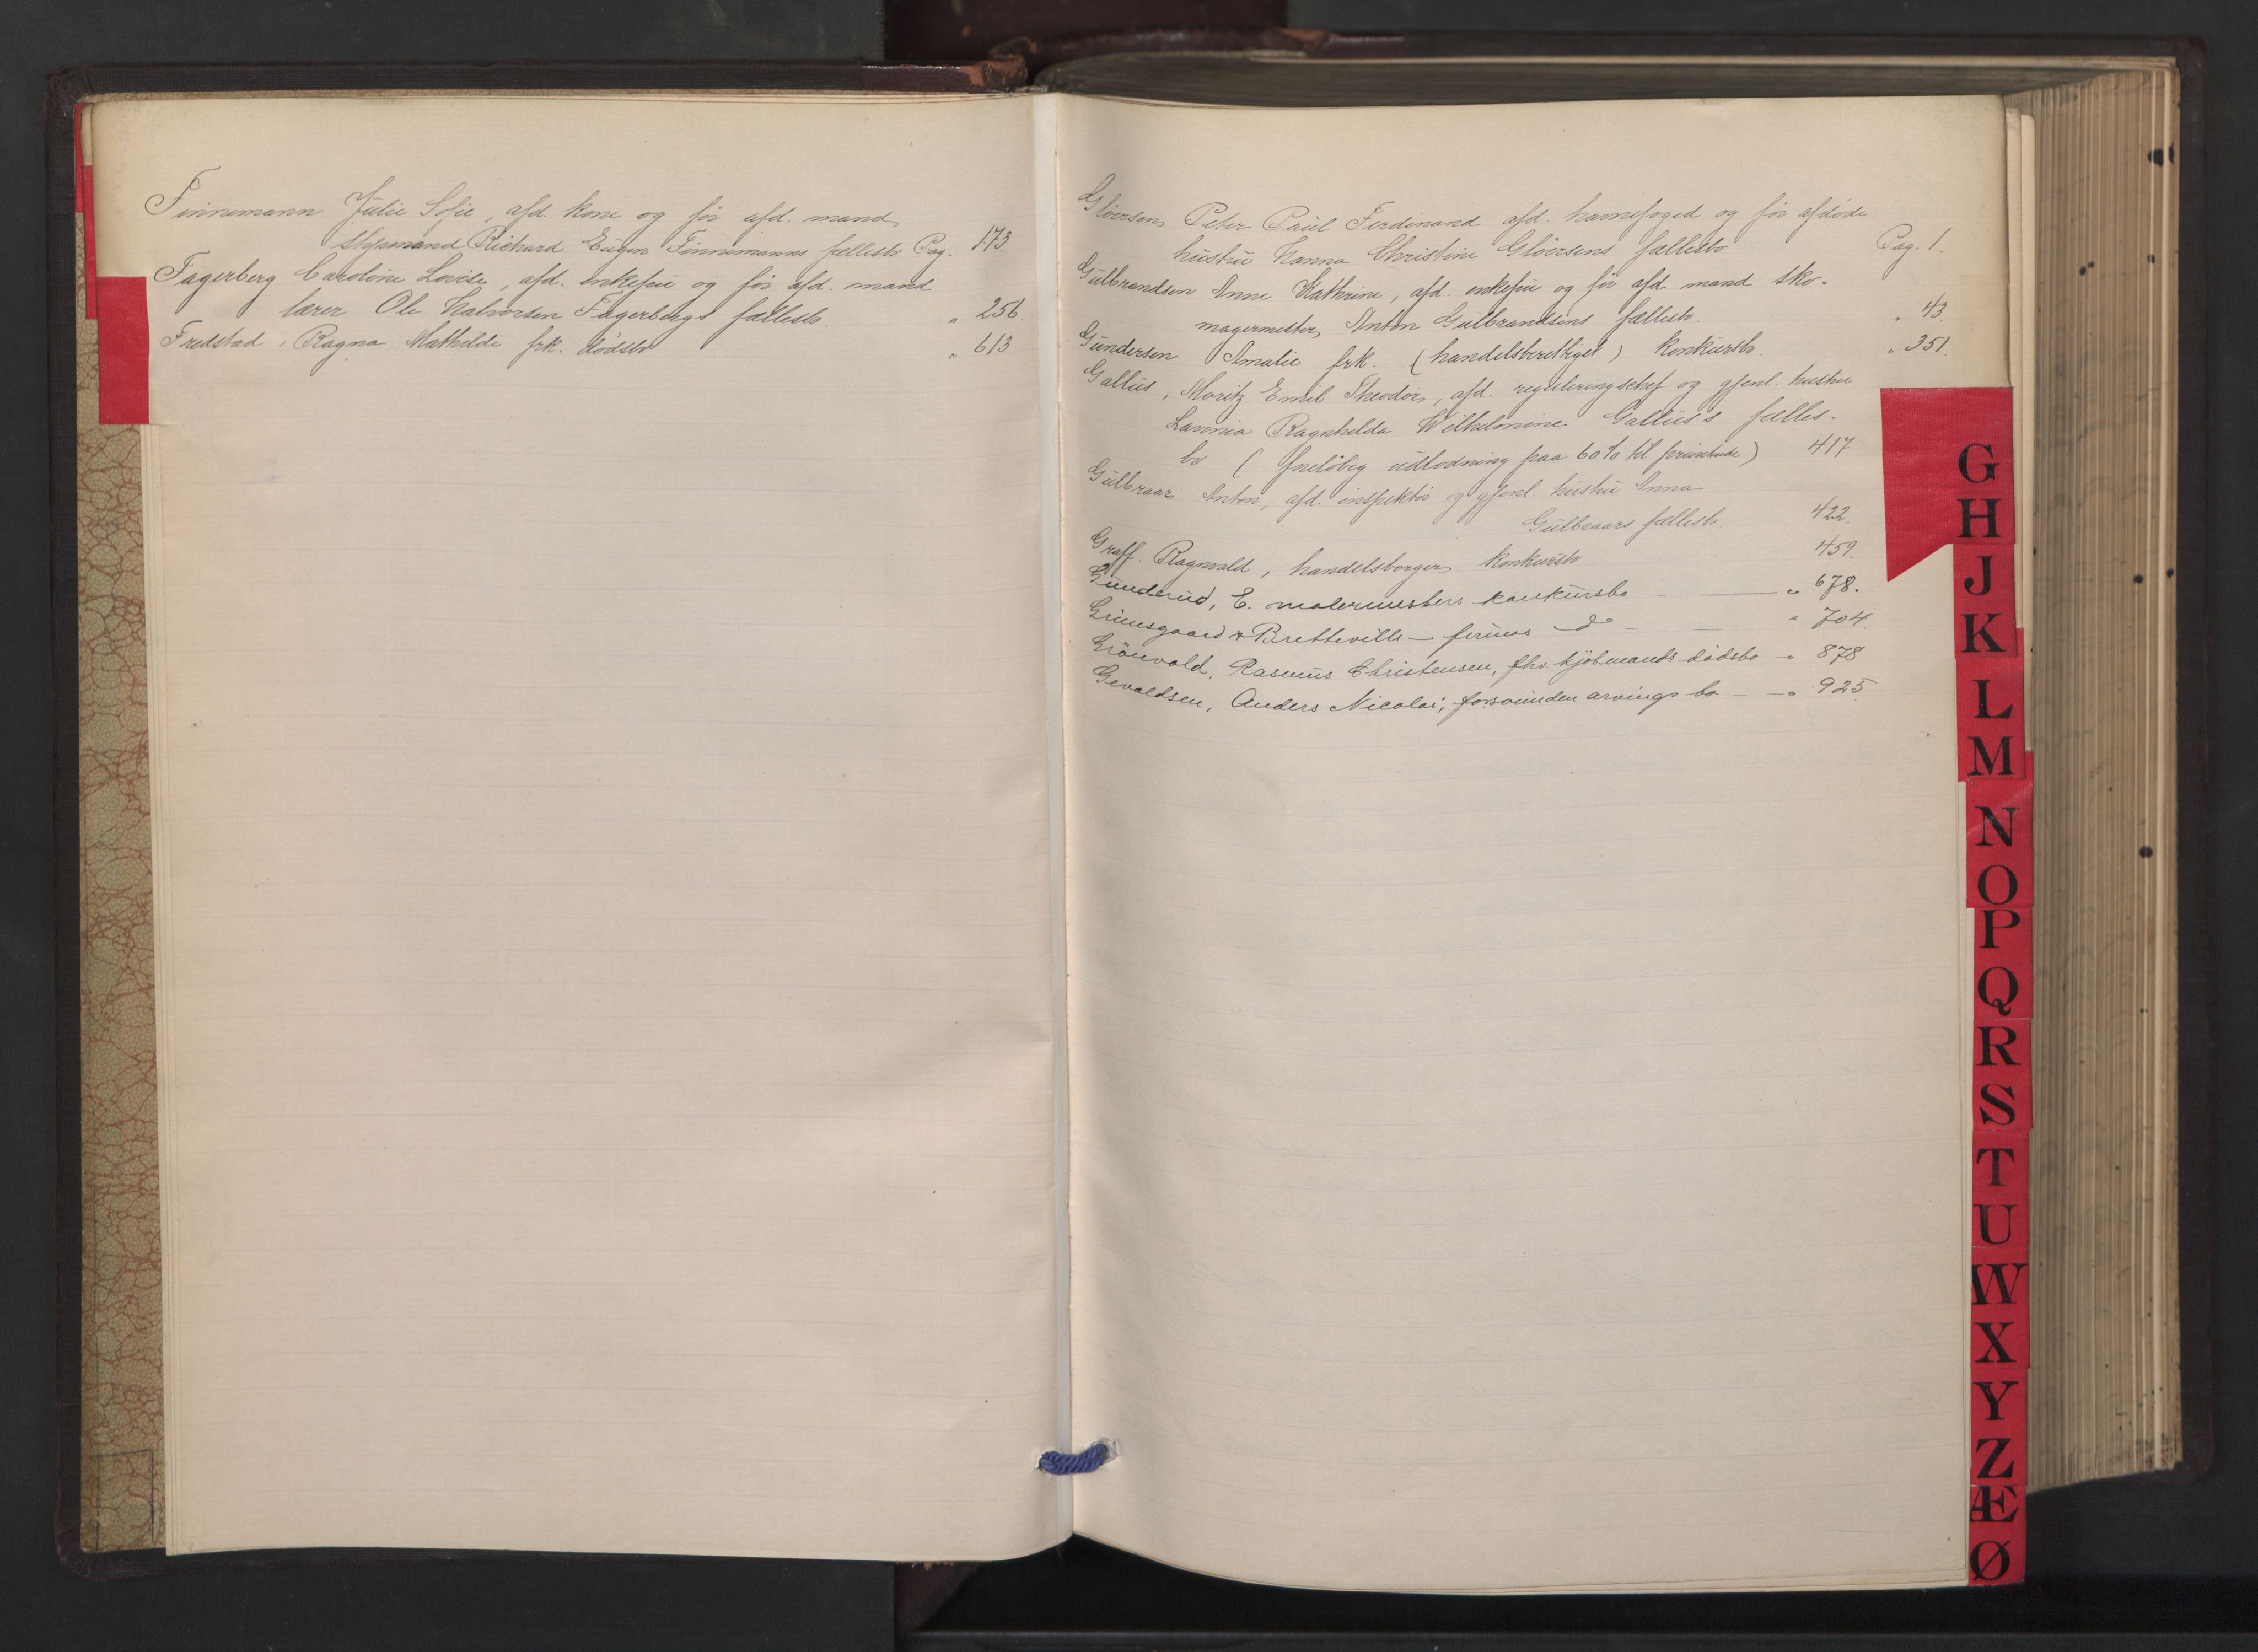 Finnemann Julie Sofie, afd. kone og før afd. mand
skipsmand Richard Eugen Finnemanns fællesb. Pag. 173
Fagerberg Caroline Lovise, afd. enkefru og før afd. mand
lærer Ole Halvorsen Fagerbergs fællesb. " 256
Fredstad, Ragna Mathilde frk. dødsbo " 613
Gløersen, Peter Paul Ferdinand afd. havnefoged og før afdøde
hustru Hanna Christine Gløersens fællesbo Pag. 1.
Gulbrandsen Anne Kathrine, afd. enkefru og før afd. mand sko-
magermester Anton Gulbrandsens fællesb. " 43.
Gundersen Amalie frk. (handelsberettiget) konkursb. " 351.
Gallus, Moritz Emil Theodor, afd. reguleringschef og gjenl. hustru
Ragnhilda Wilhelmine Gallus's fælles-
bo (foreløbig udlodning paa 60% til ) 417
Gulbraar Anton, afd. inspektør og gjenl. hustru Anna
Gulbraars fællesb. 422.
Graff. Ragnvald, handelsborger, konkursbo 459.
Gunderud, E. malermesters konkursbo — " 678.
Grimsgaard & Bretteville — firmas do — " 704.
Grönvold, Rasmus Christensen, fhv. kjøbmands dødsbo - " 878
Gevaldsen, Anders Nicolai; forsvunden arvings bo — " 925
G
H
J
K
L
M
N
O
P
Q
R
S
T
U
W
X
Y
Z
Æ
Ø